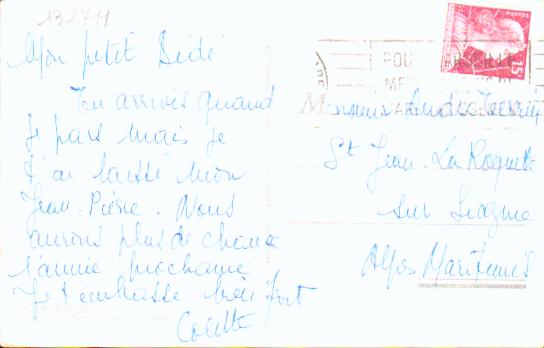 13274
Mon petit Dédé
Tu arrives quand
Je pars mais je
t'ai laissé mon
Jean-Pierre. Nous
aurons plus de chance
l'année prochaine
Je t'embrasse bien fort
Colette
POSTES
15
POU
ME
Monsieur
St Jean. La Roquette
sur Siagne
Alpes Maritimes